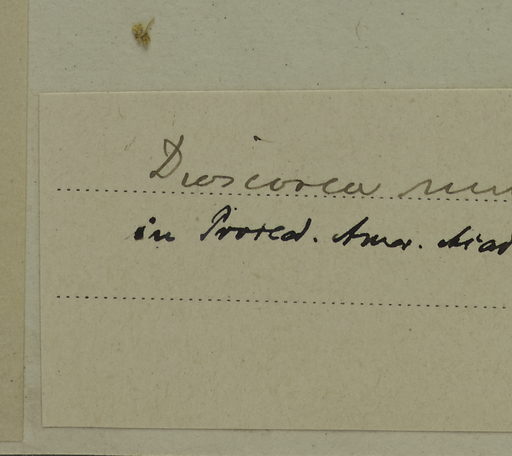 Dioscorea
in Proced. Amer. Acad